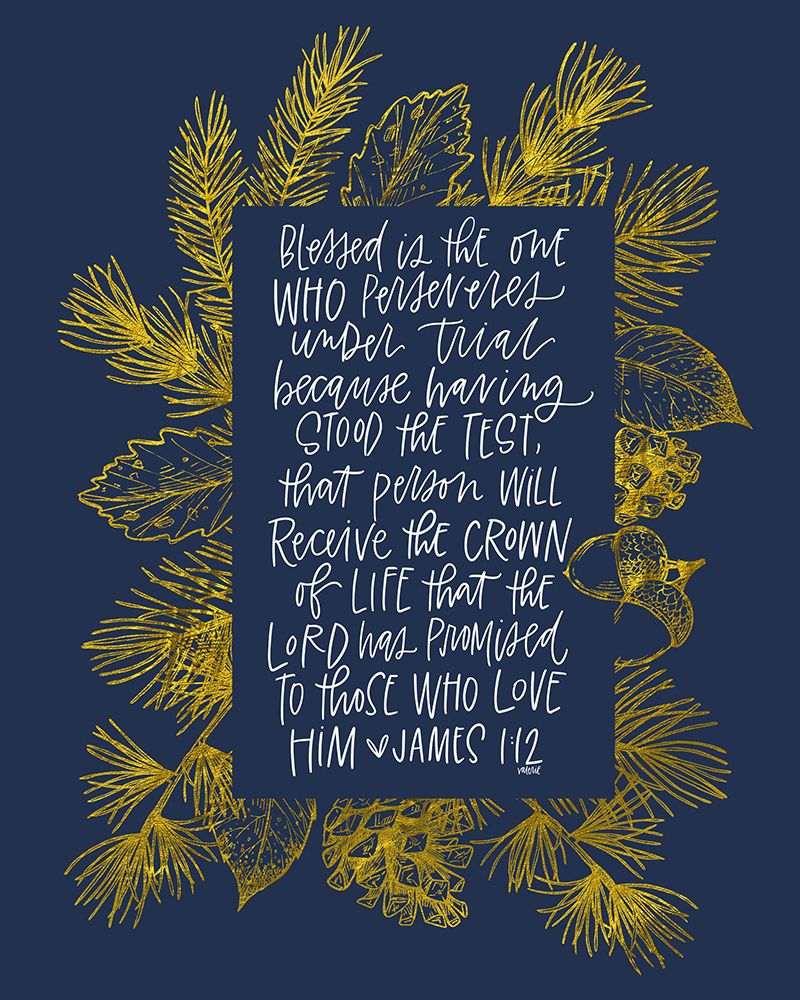 Blessed is the one
WHO Perseveres
under trial
because having
STOOD the TEST,
that person WILL
Receive the CROWN
of LIFE that the
LORD has PROMISED
TO those WHO LOVE
HIM ♡ JAMES 1:12
valerie